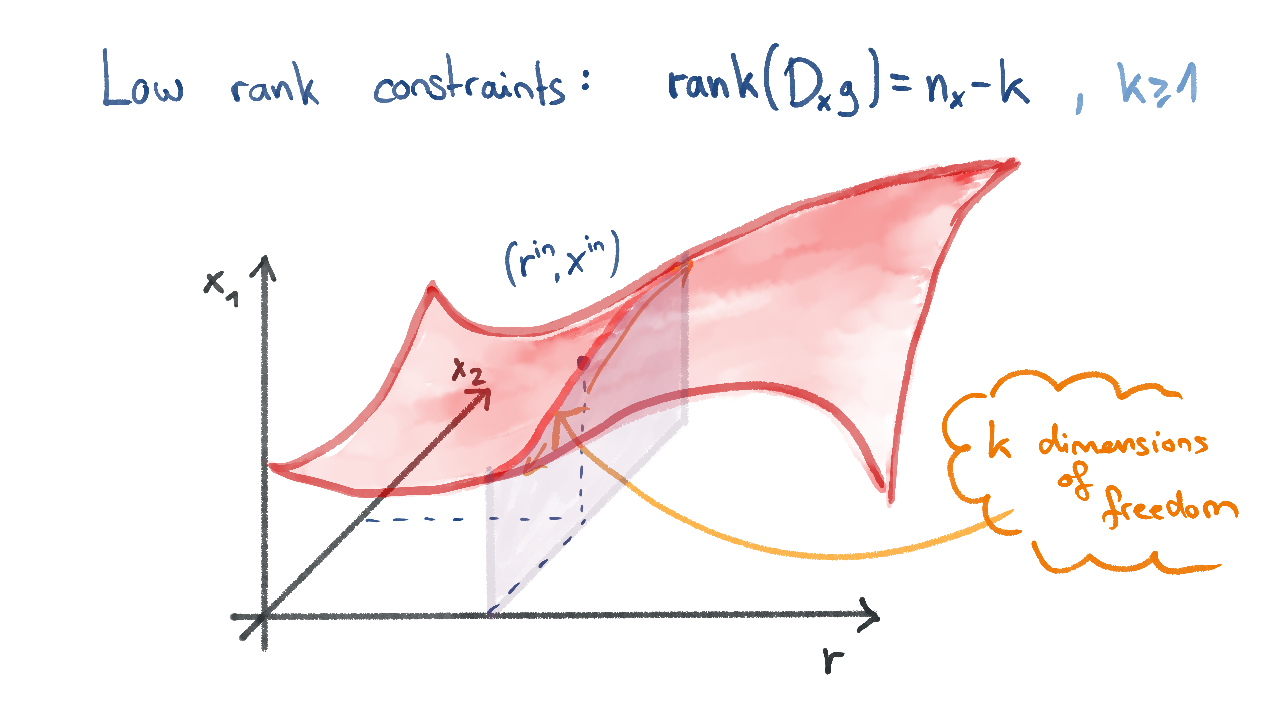 Low rank constraints: rank(Dₓg) = nₓ - k , k ≥ 1
(rⁱⁿ, xⁱⁿ)
x₁
x₂
k dimensions
of
freedom
r